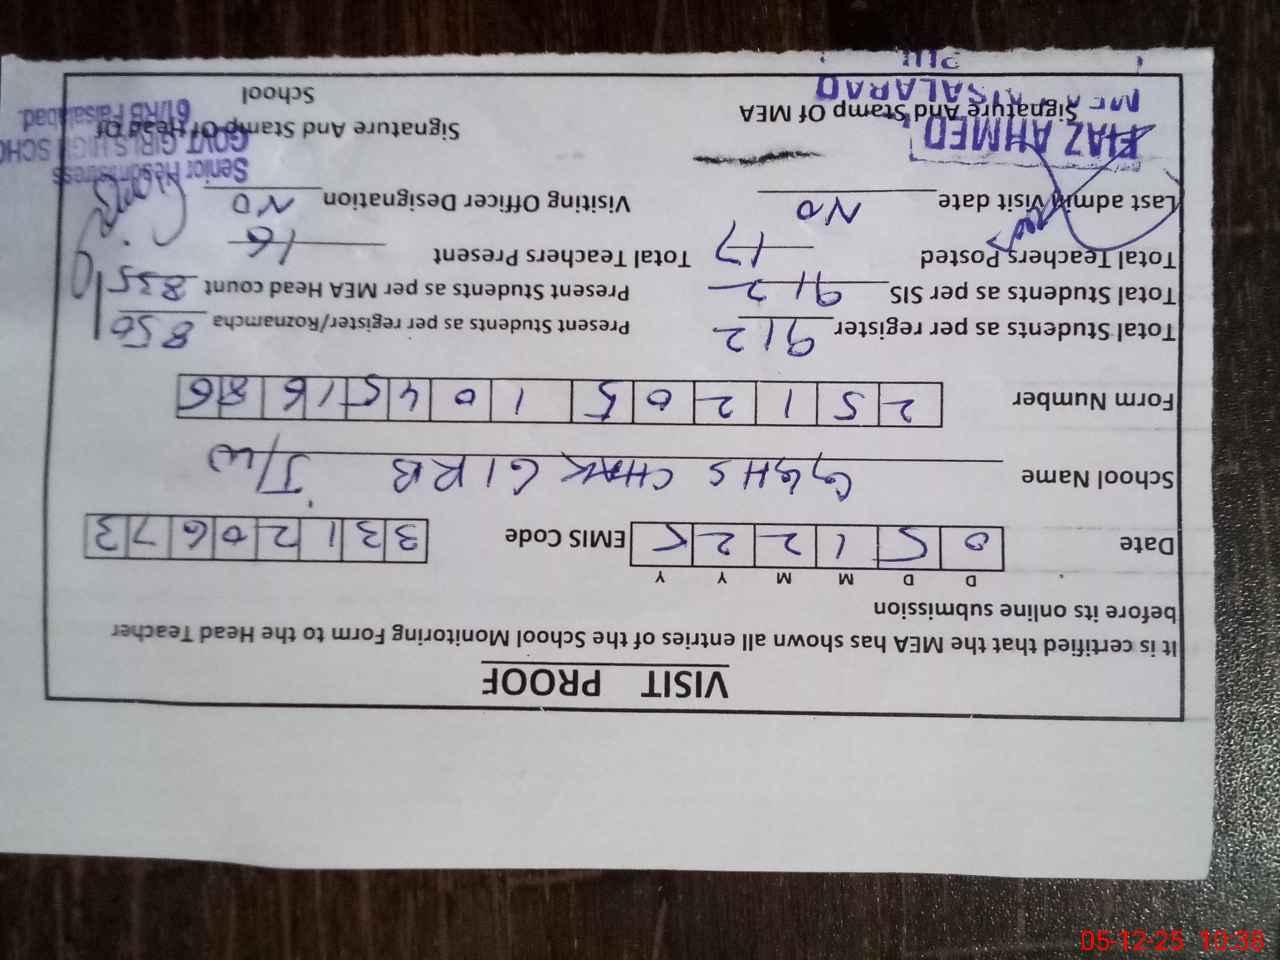 VISIT PROOF
It is certified that the MEA has shown all entries of the School Monitoring Form to the Head Teacher
before its online submission
D D M M Y Y
Date 0 5 1 2 2 5 EMIS Code 3 3 1 2 0 6 7 3
School Name GGHS CHAK 61 RB J/W
Form Number 2 5 1 2 0 5 1 0 4 5 1 6 8 6
Total Students as per register 912 Present Students as per register/Roznamcha 850
Total Students as per SIS 912 Present Students as per MEA Head count 835
Total Teachers Posted 17 Total Teachers Present 16
Last admin Visit date NO Visiting Officer Designation NO
Senior Headmistress
FIAZ AHMED GOVT GIRLS HIGH SCHO
Signature And Stamp Of MEA Signature And Stamp Of Head Of
School
61/RB Faisalabad.
05-12-25 10:38